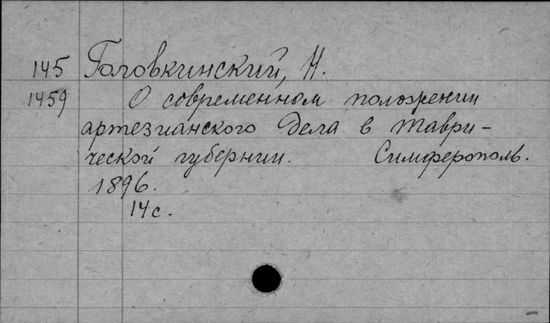 145 Головкинский, Н.
1459 О современном положении
артезианского дела в Таври-
ческой губернии. Симферополь.
1896.
14 с.